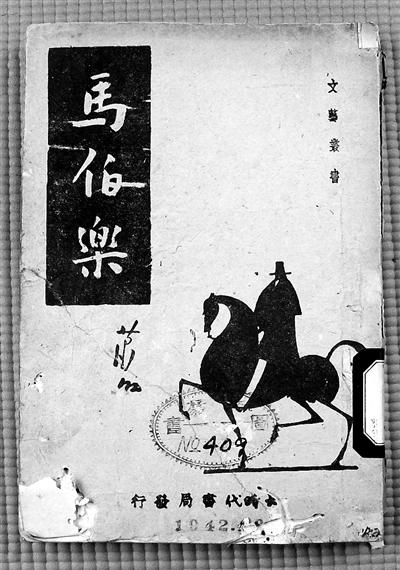 文藝叢書
馬伯樂
蕭紅
No 409
大時代書局發行
1942